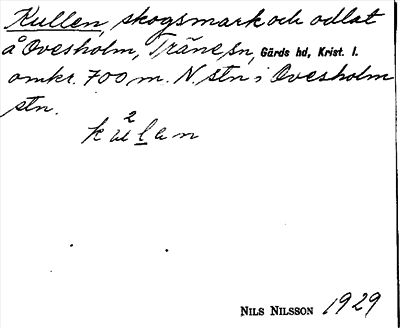 Kullen, skogsmark och odlat
å Ovesholm, Träne sn, Gärds hd, Krist. l.
omkr. 700 m. N. stn i Ovesholm
stn.
2
kulen
NILS NILSSON 1929